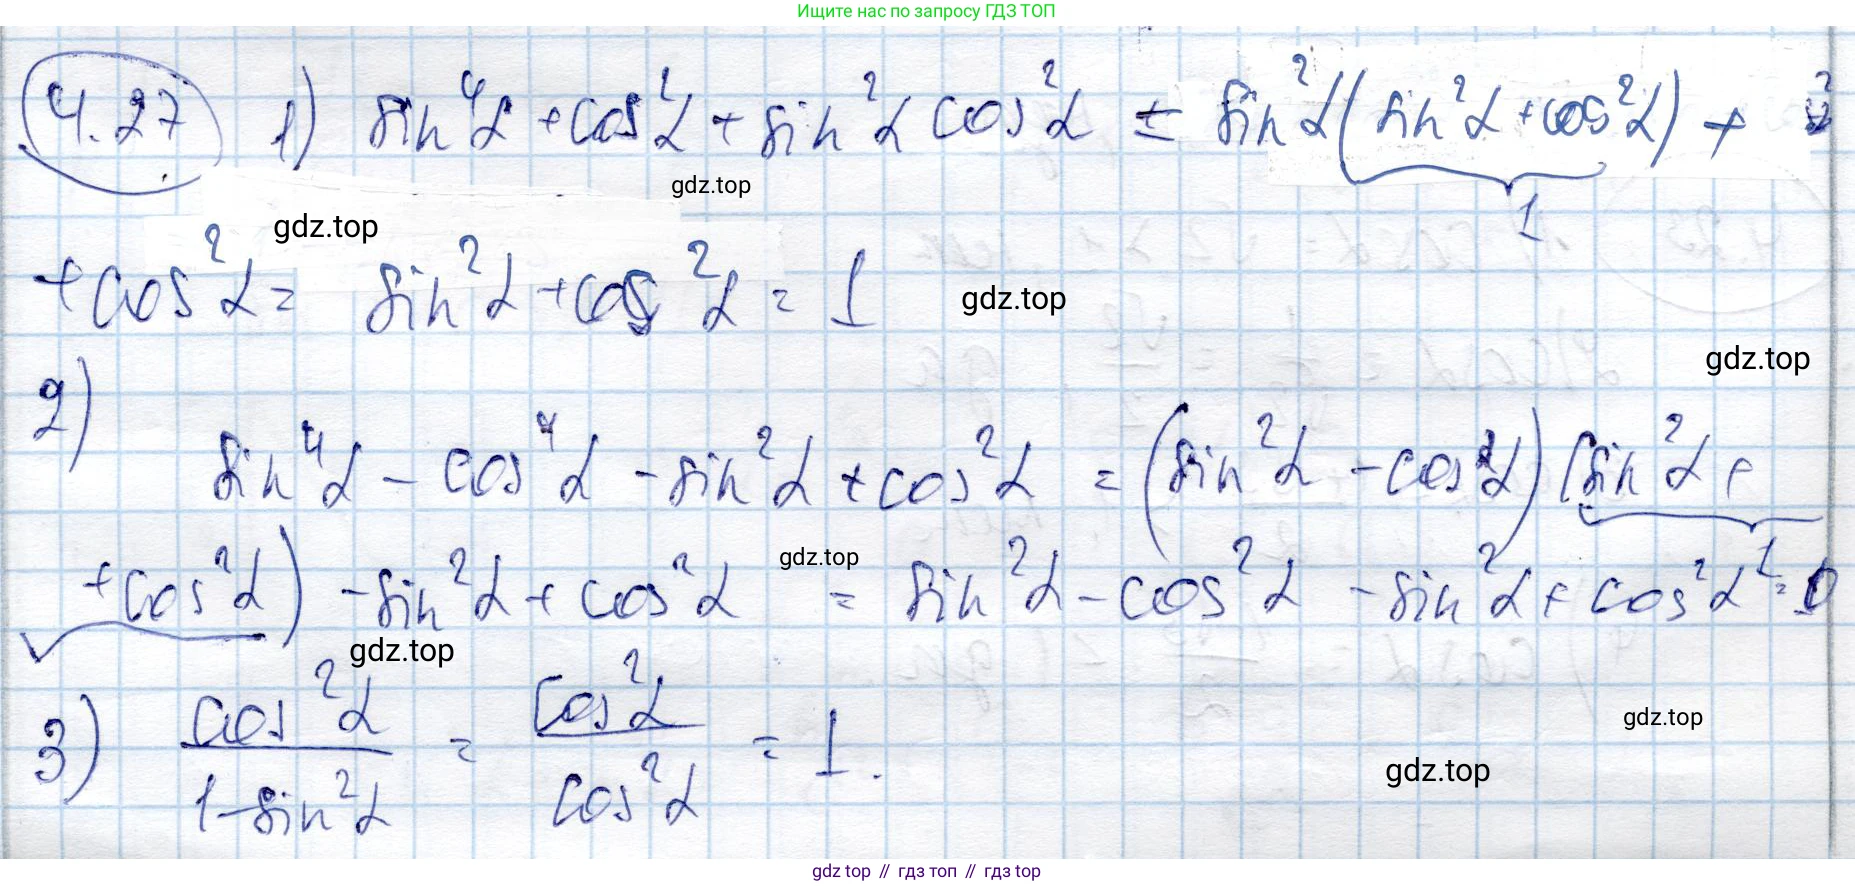 Ищите нас по запросу ГДЗ ТОП
4.27 1) sin⁴α + cos²α + sin²α cos²α = sin²α (sin²α + cos²α) +
gdz.top
1
gdz.top
+ cos²α = sin²α + cos²α = 1
gdz.top
gdz.top
2)
sin⁴α - cos⁴α - sin²α + cos²α = (sin²α - cos²α) (sin²α +
1
gdz.top
+ cos²α) - sin²α + cos²α = sin²α - cos²α - sin²α + cos²α = 0
gdz.top
3) cos²α / 1 - sin²α = cos²α / cos²α = 1.
gdz.top
gdz.top
gdz top // гдз топ // gdz top